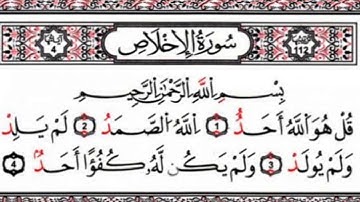 سُورَةُ الْإِخْلَاصِ
112
4
بِسْمِ اللَّهِ الرَّحْمَٰنِ الرَّحِيمِ
قُلْ هُوَ اللَّهُ أَحَدٌ 1 اللَّهُ الصَّمَدُ 2 لَمْ يَلِدْ
وَلَمْ يُولَدْ 3 وَلَمْ يَكُن لَّهُ كُفُوًا أَحَدٌ 4